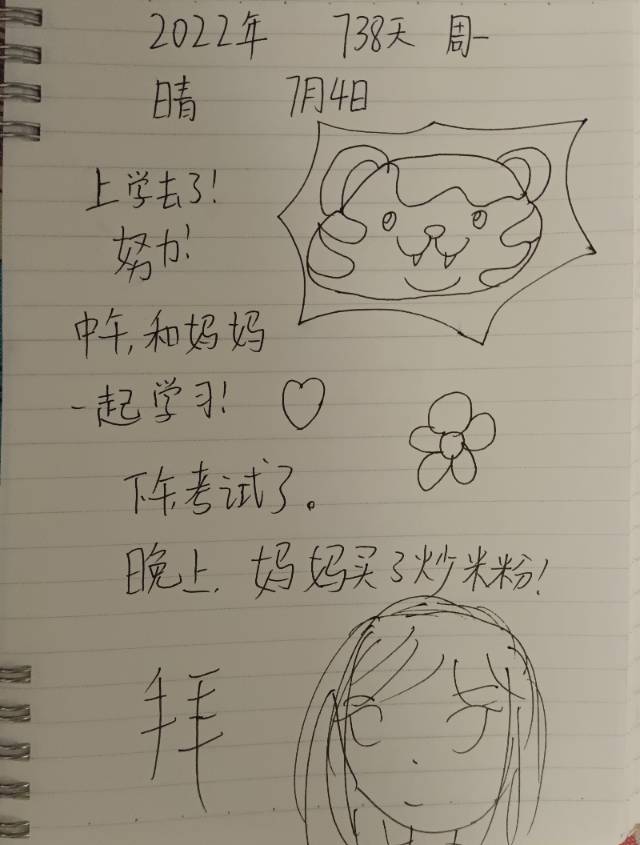 2022年 738天 周一
晴 7月4日
上学去了!
努力!
中午,和妈妈
一起学习!
下午考试了。
晚上,妈妈买了炒米粉!
拜